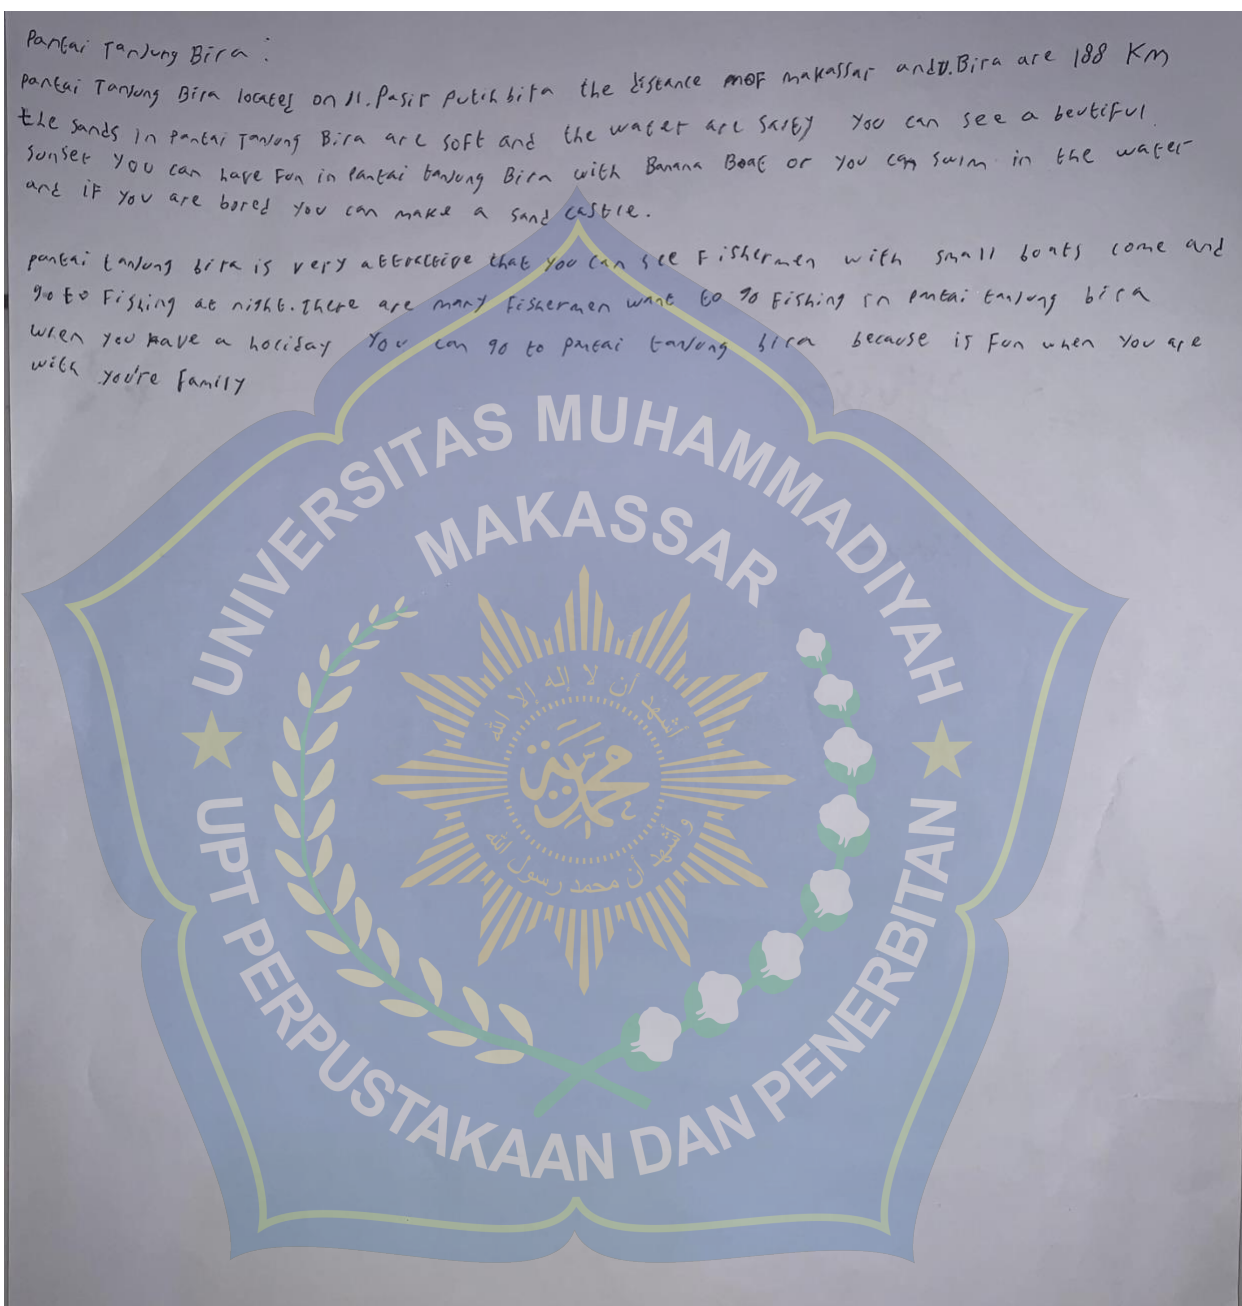 Pantai Tanjung Bira :
Pantai Tanjung Bira located on Jl. Pasir Putih bira the distance of makassar and Bira are 188 KM
the sands in pantai Tanjung Bira are soft and the water are salty You can see a beutiful
sunset you can have Fun in Pantai tanjung Bira with Banana Boat or you can swim in the water
and if you are bored you can make a sand castle.
pantai tanjung bira is very attractive that you can see Fishermen with small boats come and
go to Fishing at night. there are many Fishermen want to go Fishing in pantai tanjung bira
when you have a holiday You can go to pantai tanjung bira because is Fun when you are
with you're family
UNIVERSITAS MUHAMMADIYAH
MAKASSAR
أشهد أن لا إله إلا الله
محمدية
وأشهد أن محمد رسول الله
UPT PERPUSTAKAAN DAN PENERBITAN